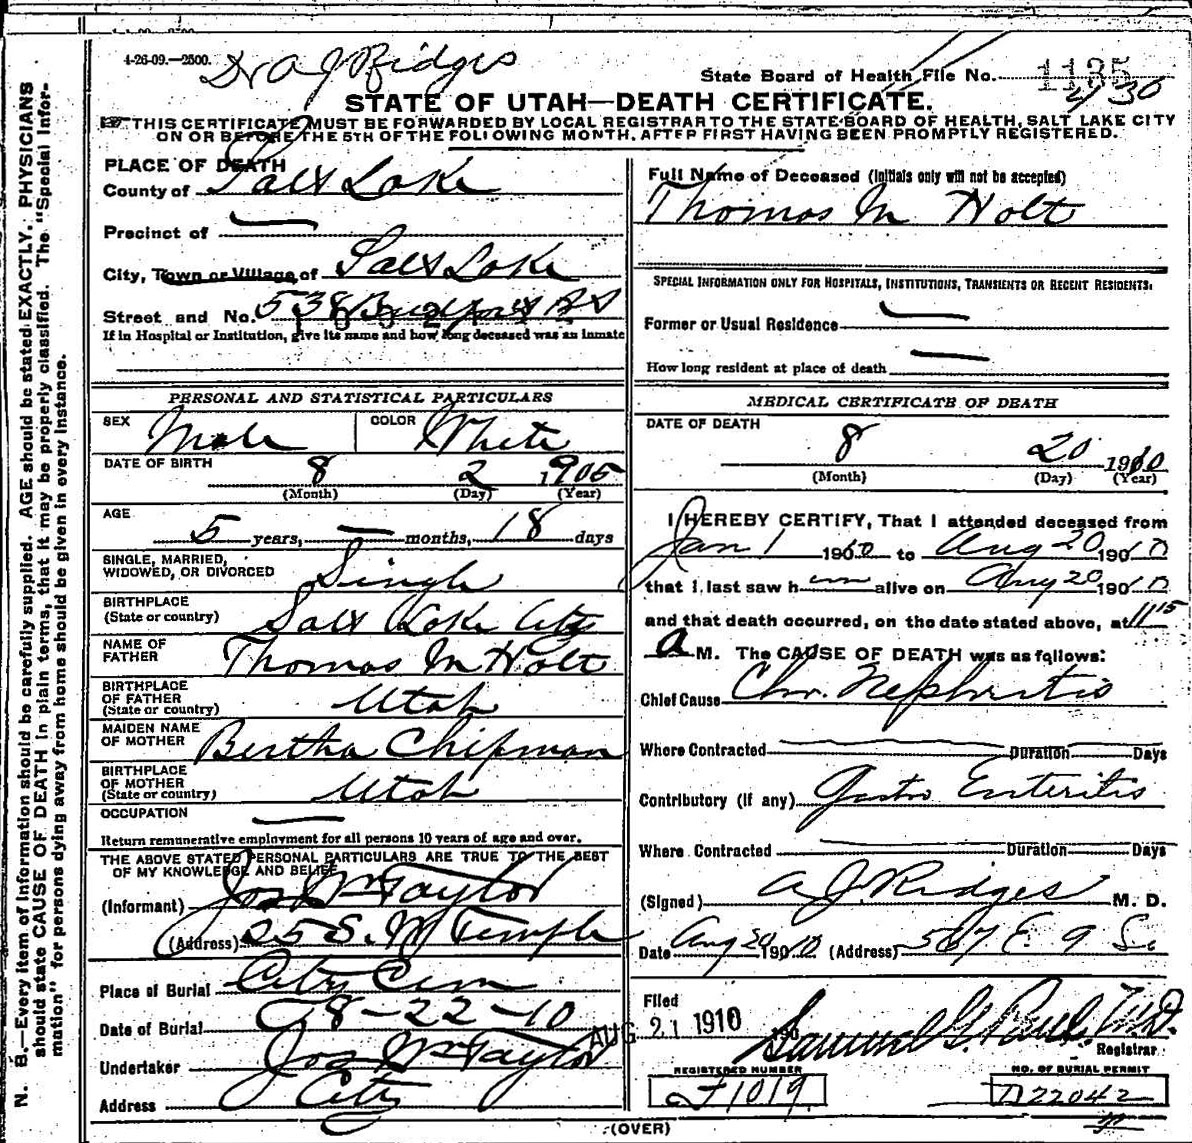 4-26-09.—2500.
Dr A J Ridges
State Board of Health File No. 1135
2/30
STATE OF UTAH—DEATH CERTIFICATE.
THIS CERTIFICATE MUST BE FORWARDED BY LOCAL REGISTRAR TO THE STATE BOARD OF HEALTH, SALT LAKE CITY
ON OR BEFORE THE 5TH OF THE FOLLOWING MONTH, AFTER FIRST HAVING BEEN PROMPTLY REGISTERED.
PLACE OF DEATH
County of Salt Lake
Precinct of —
City, Town or Village of Salt Lake
Street and No. 538
If in Hospital or Institution, give its name and how long deceased was an inmate
Full Name of Deceased (Initials only will not be accepted)
Thomas M Holt
SPECIAL INFORMATION ONLY FOR HOSPITALS, INSTITUTIONS, TRANSIENTS OR RECENT RESIDENTS.
Former or Usual Residence —
How long resident at place of death —
PERSONAL AND STATISTICAL PARTICULARS
SEX Male COLOR White
DATE OF BIRTH 8 2 1905
(Month) (Day) (Year)
AGE
5 years, — months, 18 days
SINGLE, MARRIED,
WIDOWED, OR DIVORCED Single
BIRTHPLACE
(State or country) Salt Lake City
NAME OF
FATHER Thomas M Holt
BIRTHPLACE
OF FATHER
(State or country) Utah
MAIDEN NAME
OF MOTHER Bertha Chipman
BIRTHPLACE
OF MOTHER
(State or country) Utah
OCCUPATION —
Return remunerative employment for all persons 10 years of age and over.
THE ABOVE STATED PERSONAL PARTICULARS ARE TRUE TO THE BEST
OF MY KNOWLEDGE AND BELIEF
(Informant) Jos Wm Taylor
(Address) 25 S. W Temple
Place of Burial City Cem
Date of Burial 8-22-10
Undertaker Jos Wm Taylor
Address City
MEDICAL CERTIFICATE OF DEATH
DATE OF DEATH
8 20 1910
(Month) (Day) (Year)
I HEREBY CERTIFY, That I attended deceased from
Jan 1 1910 to Aug 20 1910
that I last saw him alive on Aug 20 1910
and that death occurred, on the date stated above, at 11 15
a M. The CAUSE OF DEATH was as follows:
Chief Cause Chr. Nephritis
Where Contracted Duration Days
Contributory (if any) Gastro Enteritis
Where Contracted Duration Days
(Signed) A J Ridges M. D.
Date Aug 20 1910 (Address) 567 E. 9 So
Filed
AUG 21 1910 190
Samuel G. Paul, M.D.
Registrar
REGISTERED NUMBER
1019
NO. OF BURIAL PERMIT
D22042
(OVER)
N. B.—Every item of information should be carefully supplied. AGE should be stated EXACTLY. PHYSICIANS
should state CAUSE OF DEATH in plain terms, that it may be properly classified. The "Special Infor-
mation" for persons dying away from home should be given in every instance.